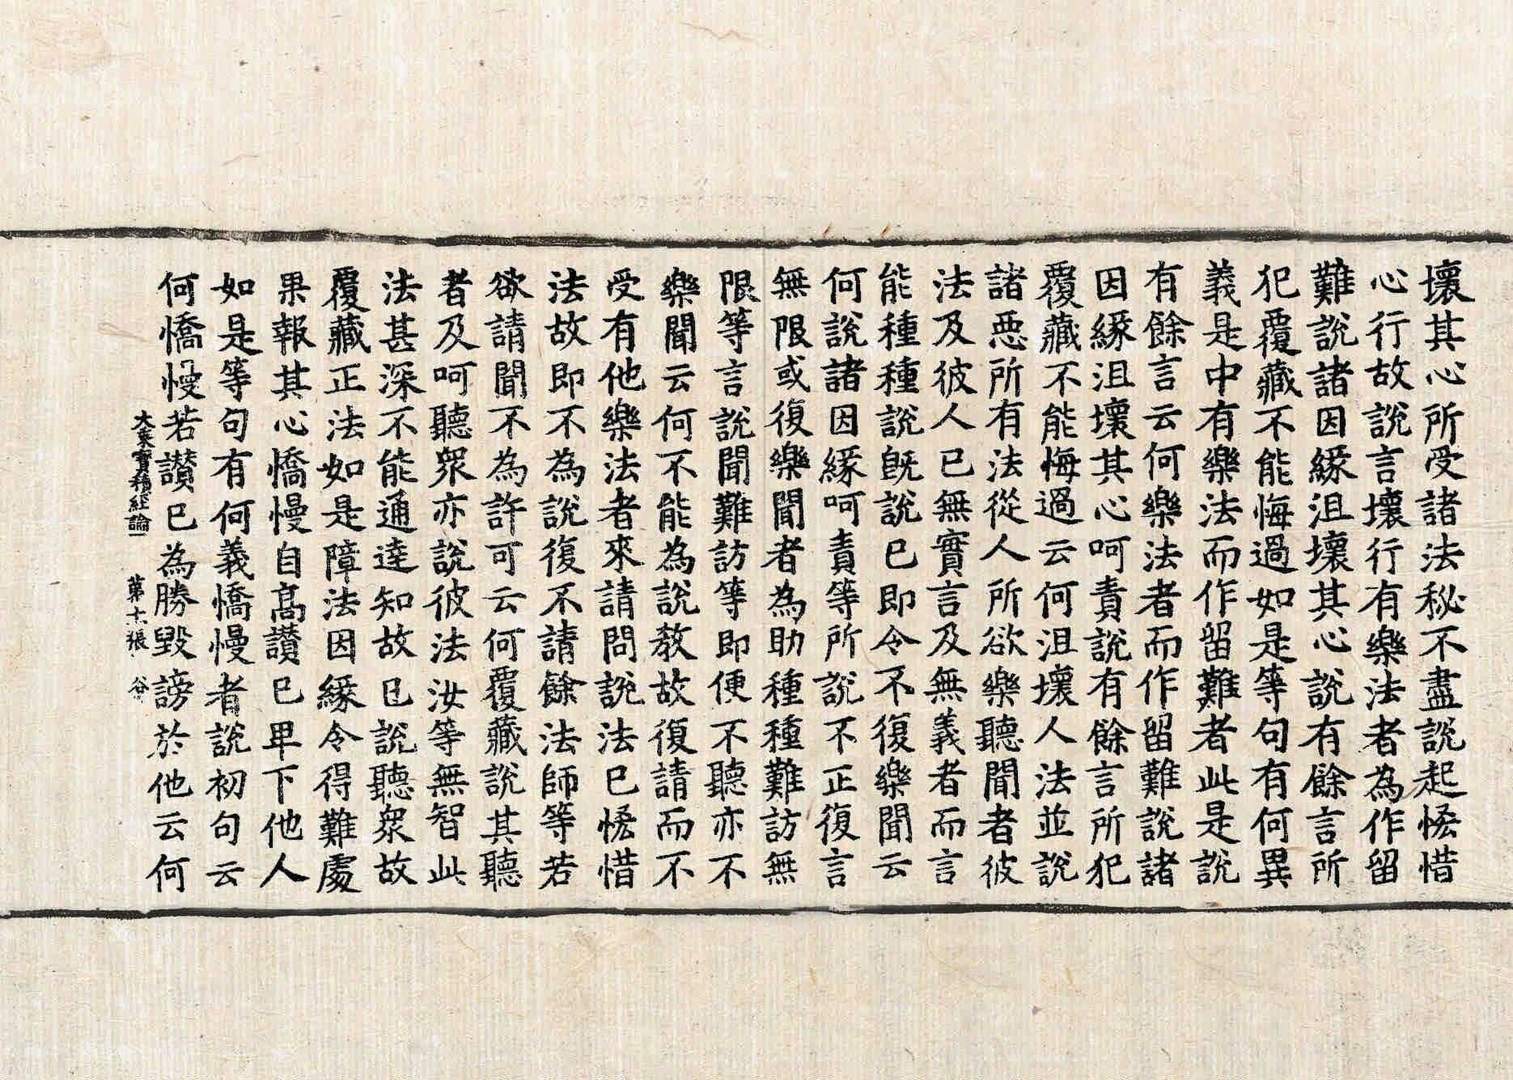 壞其心所受諸法秘不盡說起悋惜
心行故說言壞行有樂法者為作留
難說諸因緣沮壞其心說有餘言所
犯覆藏不能悔過如是等句有何異
義是中有樂法而作留難者此是說
有餘言云何樂法者而作留難說諸
因緣沮壞其心呵責說有餘言所犯
覆藏不能悔過云何沮壞人法並說
諸惡所有法從人所欲樂聽聞者彼
法及彼人已無實言及無義者而言
能種種說旣說已即令不復樂聞云
何說諸因緣呵責等所說不正復言
無限或復樂聞者為助種種難訪無
限等言說聞難訪等即便不聽亦不
樂聞云何不能為說教故復請而不
受有他樂法者來請問說法已悋惜
法故即不為說復不請餘法師等若
欲請聞不為許可云何覆藏說其聽
者及呵聽眾亦說彼法汝等無智此
法甚深不能通達知故已說聽眾故
覆藏正法如是障法因緣令得難處
果報其心憍慢自高讚已卑下他人
如是等句有何義憍慢者說初句云
何憍慢若讚已為勝毀謗於他云何
大乘寶積經論一 第十六張 谷